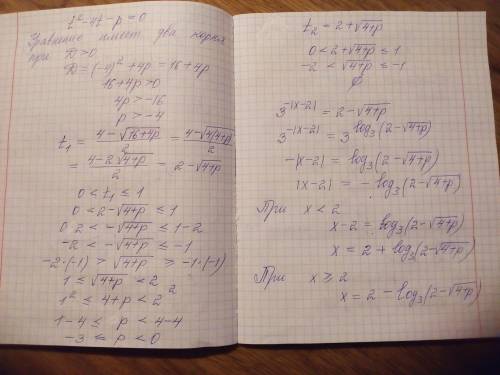 t² - 4t - p = 0
Уравнение имеет два корня
при D > 0
D = (-4)² + 4p = 16 + 4p
16 + 4p > 0
4p > -16
p > -4
t₁ = (4 - √(16+4p))/2 = (4 - √(4(4+p)))/2
= (4 - 2√(4+p))/2 = 2 - √(4+p)
0 < t₁ ≤ 1
0 < 2 - √(4+p) ≤ 1
0 2 < -√(4+p) ≤ 1-2
-2 < -√(4+p) ≤ -1
-2·(-1) > √(4+p) ≥ -1·(-1)
1 ≤ √(4+p) < 2
1² ≤ 4+p < 2²
1-4 ≤ p < 4-4
-3 ≤ p < 0
t₂ = 2 + √(4+p)
0 < 2 + √(4+p) ≤ 1
-2 < √(4+p) ≤ -1
∅
3^(-|x-2|) = 2 - √(4+p)
3^(-|x-2|) = 3^(log₃(2-√(4+p)))
-|x-2| = log₃(2-√(4+p))
|x-2| = -log₃(2-√(4+p))
При x < 2
x-2 = log₃(2-√(4+p))
x = 2 + log₃(2-√(4+p))
При x ≥ 2
x = 2 - log₃(2-√(4+p))